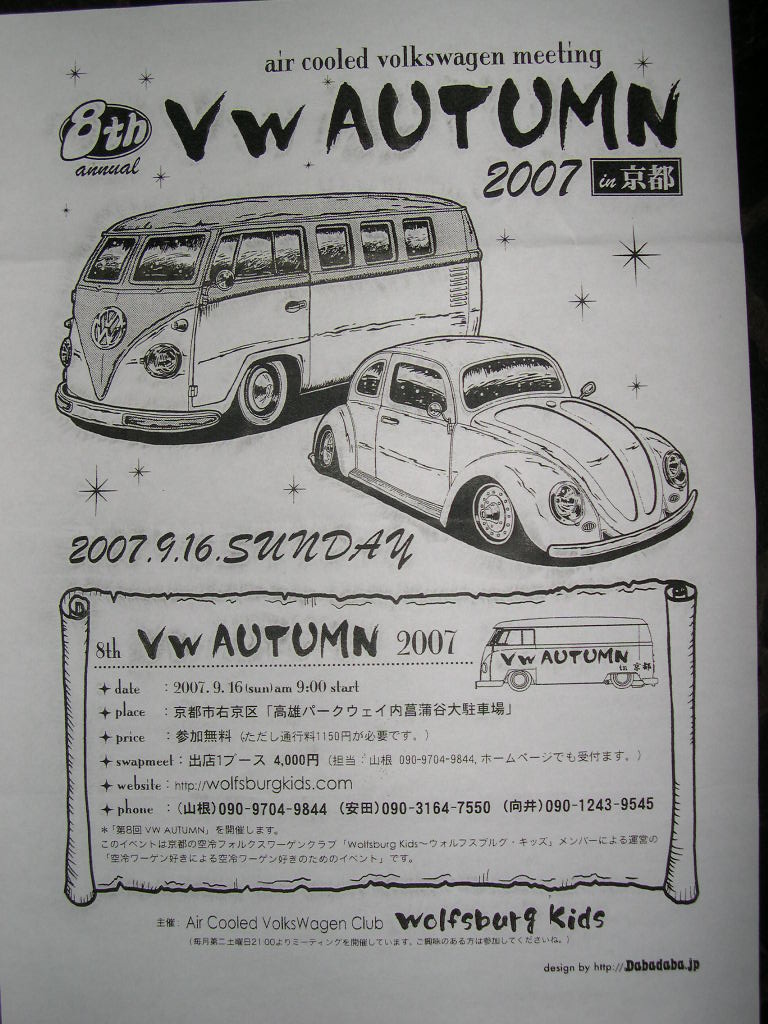 air cooled volkswagen meeting
8th
annual
VW AUTUMN
2007 in 京都
2007.9.16.SUNDAY
8th VW AUTUMN 2007
VW AUTUMN
in 京都
date : 2007. 9. 16(sun)am 9:00 start
place : 京都市右京区「高雄パークウェイ内菖蒲谷大駐車場」
price : 参加無料 (ただし通行料1150円が必要です。)
swapmeet : 出店1ブース 4,000円 (担当:山根 090-9704-9844, ホームページでも受付ます。)
website : http://wolfsburgkids.com
phone : (山根)090-9704-9844 (安田)090-3164-7550 (向井)090-1243-9545
*「第8回 VW AUTUMN」を開催します。
このイベントは京都の空冷フォルクスワーゲンクラブ「Wolfsburg Kids〜ウォルフスブルグ・キッズ」メンバーによる運営の
「空冷ワーゲン好きによる空冷ワーゲン好きのためのイベント」です。
主催: Air Cooled VolksWagen Club Wolfsburg Kids
(毎月第二土曜日21:00よりミーティングを開催しています。ご興味のある方は参加してくださいね。)
design by http://Dabadaba.jp